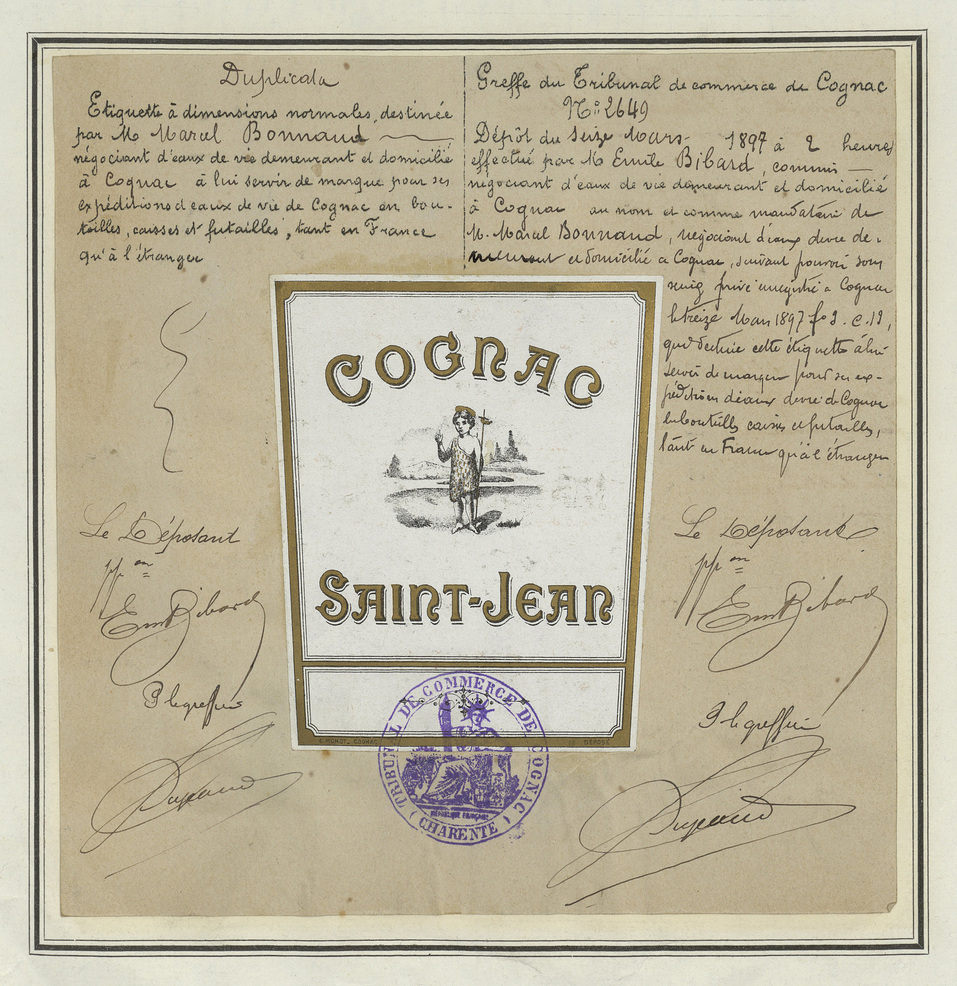 Duplicata
Etiquette à dimensions normales, destinée
par Mr Marcel Bonnaud
négociant d'eaux de vie demeurant et domicilié
à Cognac à lui servir de marque pour ses
expéditions d'eaux de vie de Cognac en bou-
teilles, caisses et futailles, tant en France
qu'à l'étranger
Le Déposant
pp on
Em Bibard
P le greffier
Greffe du Tribunal de commerce de Cognac
No 2649
Dépôt du seize Mars 1897 à 2 heures
effectué par Mr Emile Bibard, commis
négociant d'eaux de vie demeurant et domicilié
à Cognac au nom et comme mandataire de
M. Marcel Bonnaud, négociant d'eaux de vie de-
meurant et domicilié à Cognac, suivant pouvoir sous
seing privé enregistré à Cognac
le treize Mars 1897 fo 3. c. 19,
qui destine cette étiquette à lui
servir de marque pour ses ex-
péditions d'eaux de vie de Cognac
en bouteilles caisses et futailles,
tant en France qu'à l'étranger
Le Déposant
pp on
Em Bibard
P le greffier
COGNAC
SAINT-JEAN
COGNAC
DÉPOSÉ
TRIBUNAL DE COMMERCE DE COGNAC
RÉPUBLIQUE FRANÇAISE
(CHARENTE)